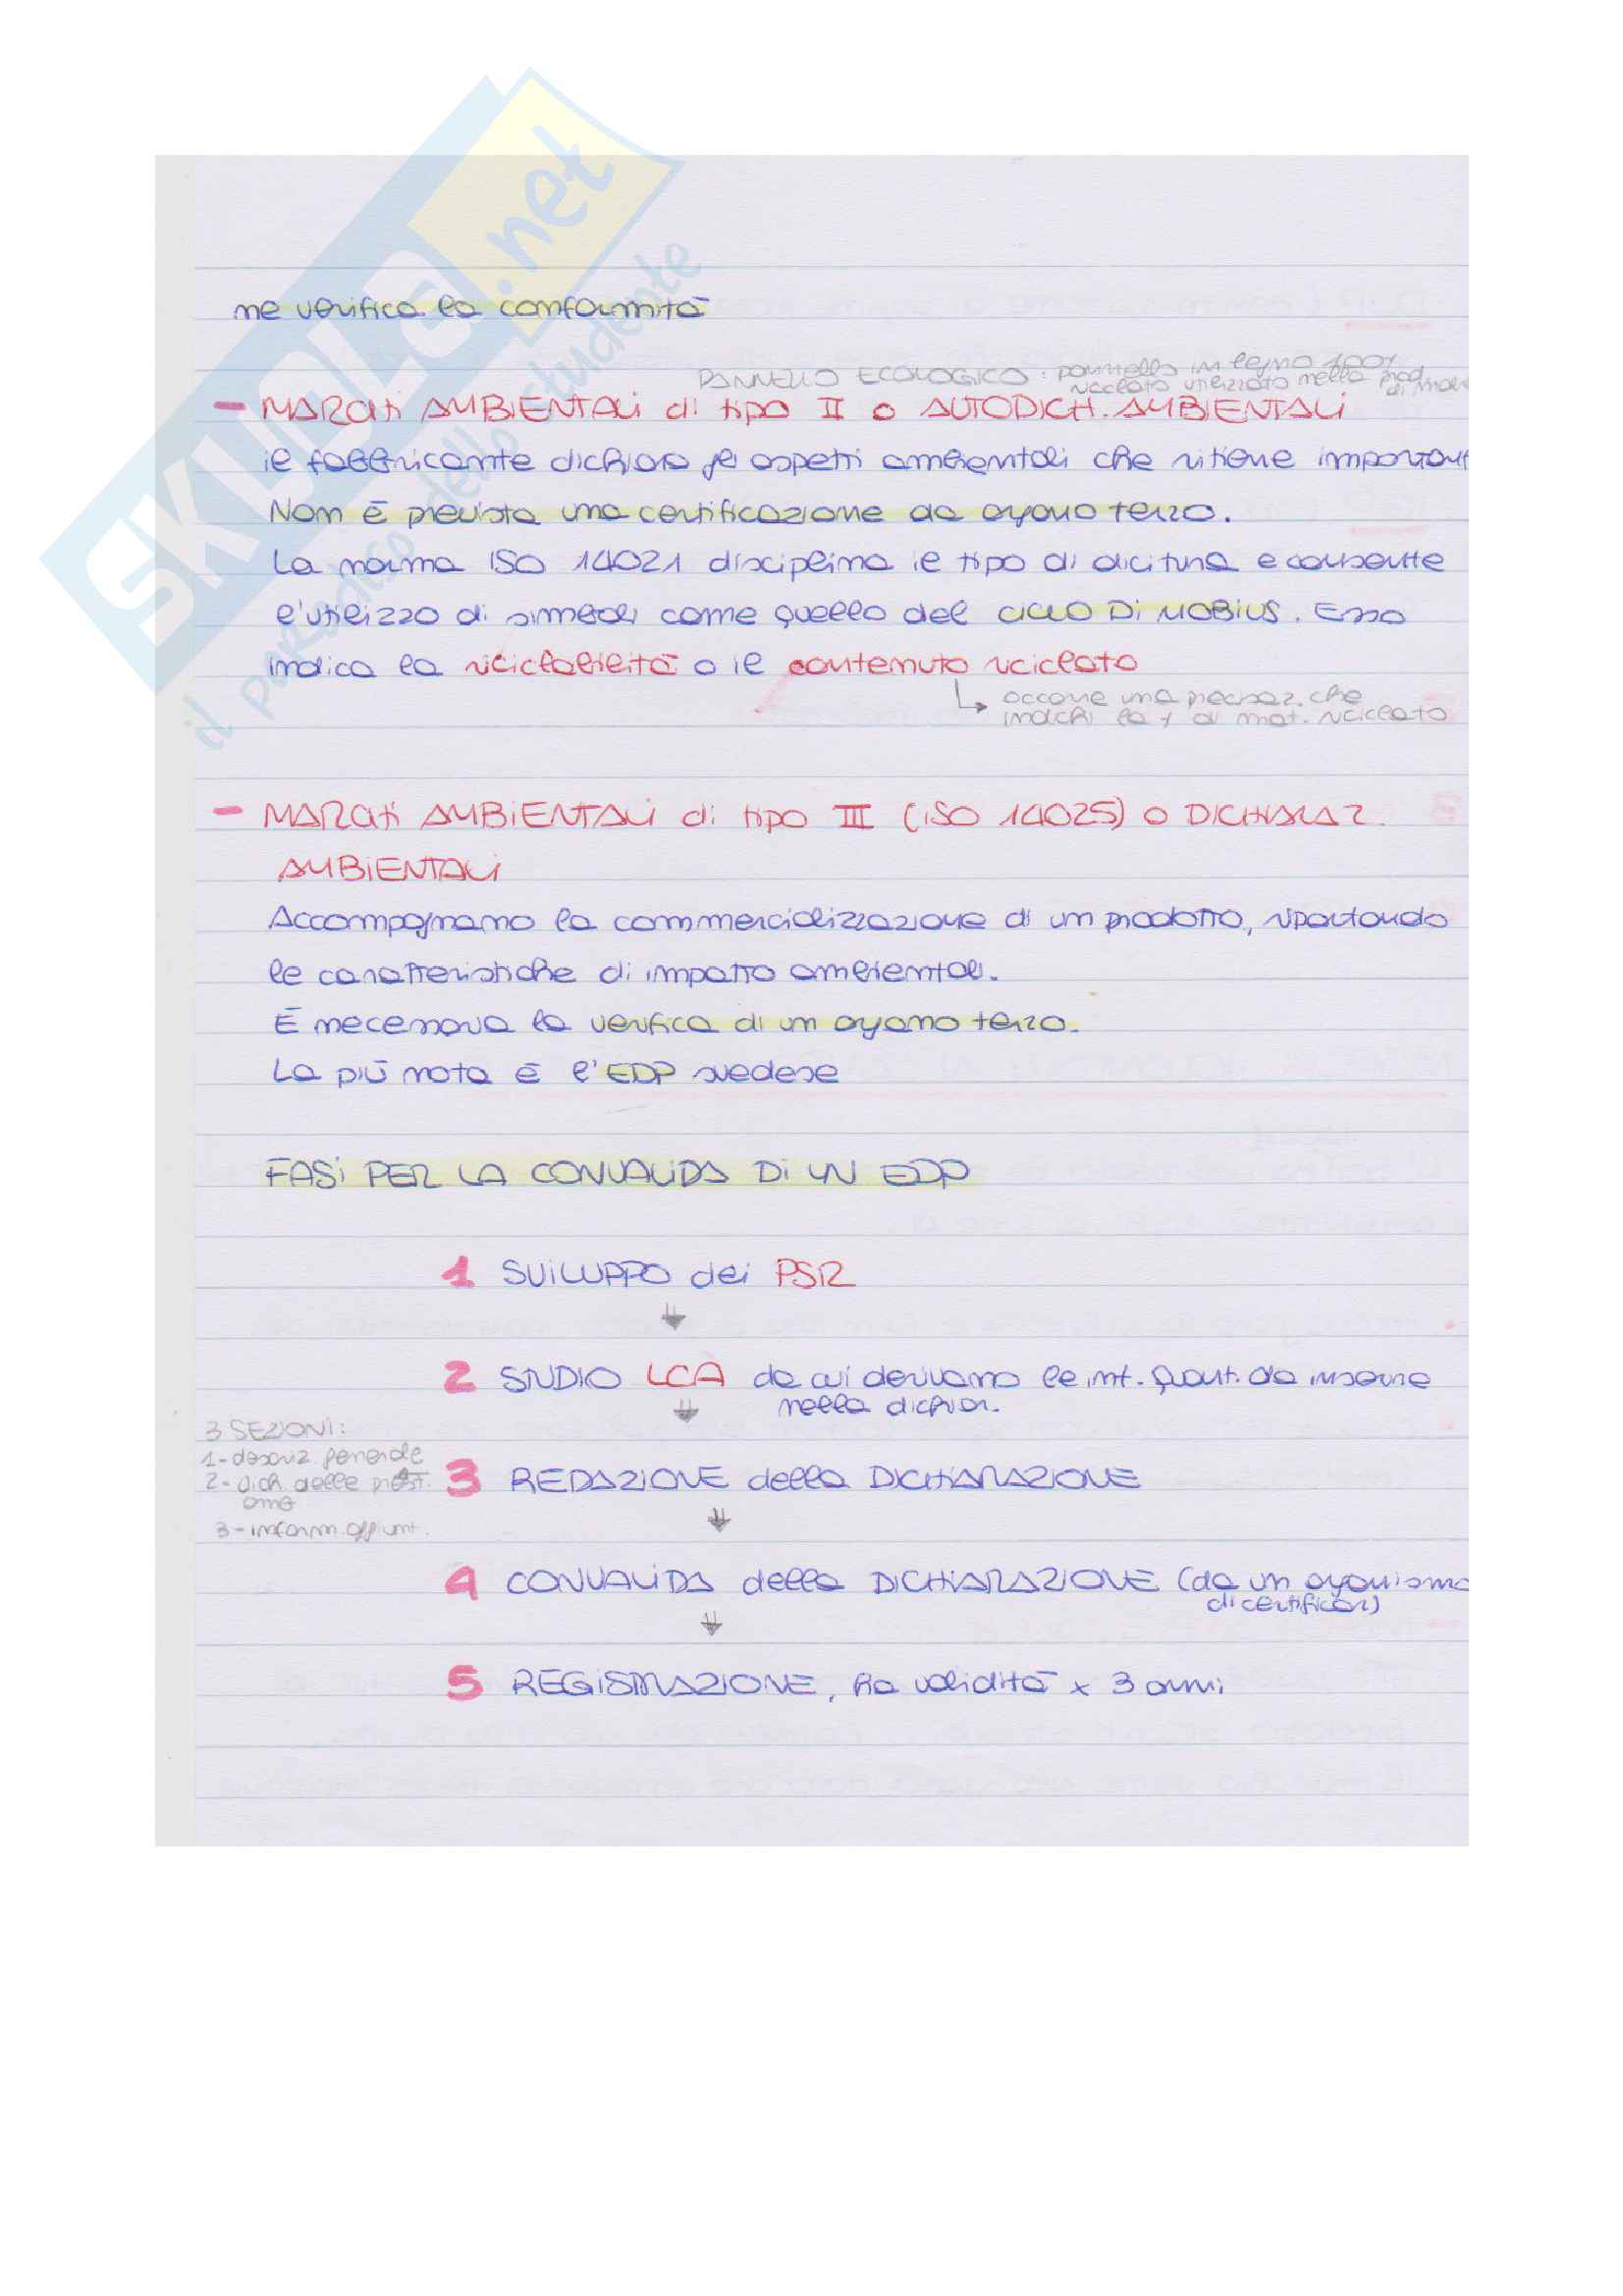 SKUOLA.net
il paradiso dello studente
ne verifica la conformità
PANNELLO ECOLOGICO: pannello in legno 100%
riciclato utilizzato nella prod.
di mobi
- MARCHi AMBiENTALi di tipo II o AUTODICH. AMBiENTALi
il fabbricante dichiara gli aspetti ambientali che ritiene important
Non è prevista una certificazione da organo terzo.
La norma ISO 14021 disciplina il tipo di dicitura e consente
l'utilizzo di simboli come quello del CICLO Di MOBIUS. Esso
indica la riciclabilità o il contenuto riciclato
↳ occorre una precisaz. che
indichi la % di mat. riciclato
- MARCHi AMBiENTALi di tipo III (iSO 14025) o DICHIARAZ.
AMBiENTALi
Accompagnano la commercializzazione di un prodotto, riportando
le caratteristiche di impatto ambientali.
È necessaria la verifica di un organo terzo.
La più nota è l'EDP svedese
FASi PER LA CONVALiDA Di UN EDP
1 SViLUPPO dei PSR
↓
2 STUDIO LCA da cui derivano le inf. quant. da inserire
nella dichiar.
↓
3 SEZIONi:
1- descriz. generale
2- dich. delle prest.
amb
3- inform. aggiunt.
3 REDAZIONE della DICHiARAZIONE
↓
4 CONVALiDA della DICHiARAZIONE (da un organismo
di certificaz)
↓
5 REGiSTRAZIONE, ha validità x 3 anni